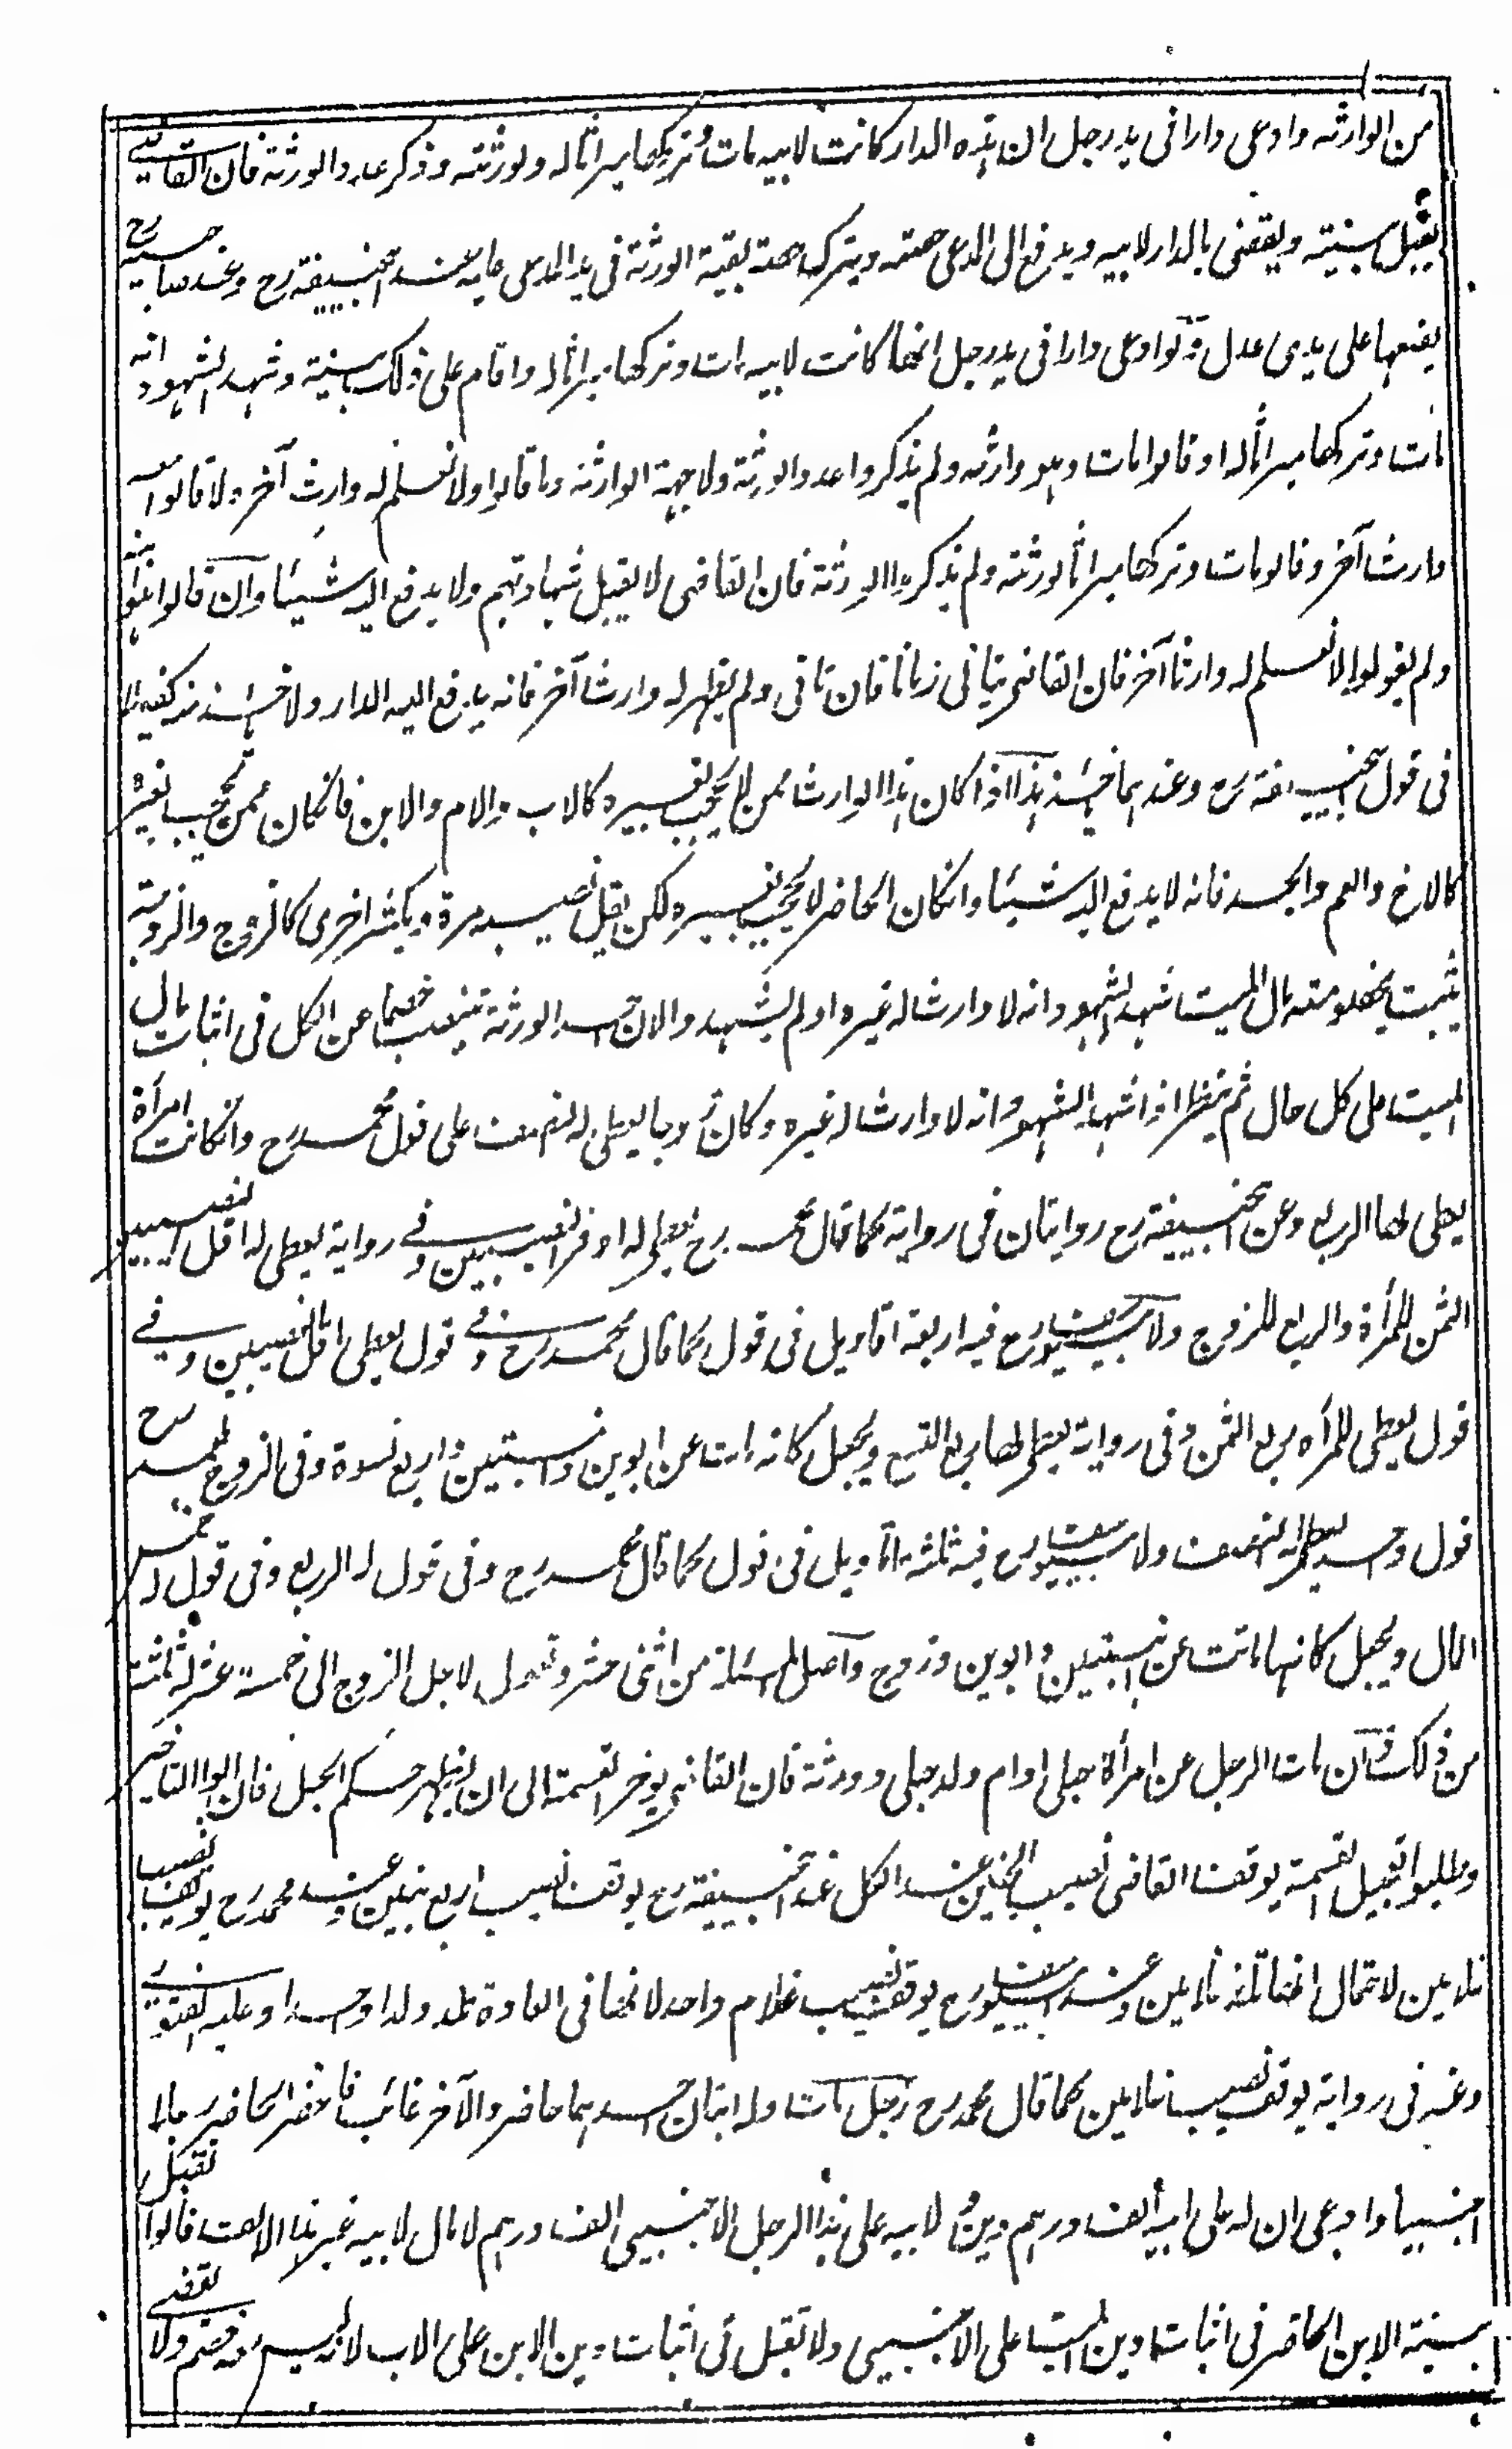 من الوارثه وادعى دارا فى يد رجل ان هذه الدار كانت لابيه مات وتركها ميراثا له ولورثته وذكر عدد الورثة فان القاضى
يقبل بينته ويقضى بالدار لابيه ويدفع الى المدعى حصته ويترك حصة بقية الورثة فى يد المدعى عليه عند ابيحنيفة رح وعند صاحبيه رح
يضعها على يدى عدل ولو ادعى دارا فى يد رجل انها كانت لابيه مات وتركها ميراثا له واقام على ذلك بينة وشهد الشهود انه
مات وتركها ميراثا له او قالوا مات وهو وارثه ولم يذكروا عدد الورثة ولا جهة الوارثه وما قالوا ولا نعلم له وارث آخر ولا قالوا
وارث آخر وقالو مات وتركها ميراثا لورثته ولم يذكروا الورثة فان القاضى لا يقبل شهادتهم ولا يدفع اليه شيئا وان قالوا ابنه
ولم يقولوا لا نعلم له وارثا آخر فان القاضى يتانى زمانا فان تانى ولم يظهر له وارث آخر فانه يدفع اليه الدار ولا خذ منه كفيلا
فى قول ابيحنيفة رح وعندهما ياخذ هذا اذا كان هذا الوارث ممن لا يحجب بغيره كالاب والام والابن فانكان ممن يحجب بغيره
كالاخ والعم والجد فانه لا يدفع اليه شيئا وانكان الحاضر لا يحجب بغيره لكن يقل نصيبه مرة ويكثر اخرى كالزوج والزوجة
يثبت بخصومته مال الميت شهد الشهود انه لا وارث له غيره او لم يشهدوا لان احد الورثة ينتصب خصما عن الكل فى اثبات مال
الميت على كل حال ثم ينظر اذا شهد الشهود انه لا وارث له غيره وكان زوجا يعطى له النصف على قول محمد رح وانكانت امرأة
يعطى لها الربع وعن ابيحنيفة رح روايتان فى رواية كما قال محمد رح يعطى له اوفر النصيبين وفى رواية يعطى له اقل النصيبين
الثمن للمرأة والربع للزوج ولابيوسف رح فيه اربعة اقاويل فى قول كما قال محمد رح وفى قول يعطى اقل النصيبين وفى
قول يعطى للمرأه ربع الثمن وفى رواية يعطى لها ربع التسع ويجعل كانه مات عن ابوين وابنتين واربع نسوة وفى الزوج لمحمد رح
قول واحد يعطى له النصف ولابيوسف رح فيه ثلثة اقاويل فى قول كما قال محمد رح وفى قول له الربع وفى قول له خمس
المال ويجعل كانها ماتت عن ابنتين وابوين وزوج واصل المسئلة من اثنى عشر وتعول لاجل الزوج الى خمسة عشر له ثلثة
من ذلك وان مات الرجل عن امرأة حبلى او ام ولد حبلى وورثة فان القاضى يوخر القسمة الى ان يظهر حكم الحبل فان ابوا التاخير
وطلبوا تعجيل القسمة يوقف القاضى نصيب الجنين عند الكل عند ابيحنيفة رح يوقف نصيب اربع بنين وعند محمد رح يوقف نصيب
غلامين لاحتمال انها تلد غلامين وعند ابيوسف رح يوقف نصيب غلام واحد لانها فى العادة تلد ولدا واحدا وعليه الفتوى
وعنه فى رواية يوقف نصيب غلامين كما قال محمد رح رجل مات وله ابنان احدهما حاضر والآخر غائب فاحضر الحاضر رجلا
اجنبيا وادعى ان له على ابيه الف درهم دين ولابيه على هذا الرجل الاجنبى الف درهم لا مال لابيه غير هذا الالف قالوا تقبل
بينة الابن الحاضر فى اثبات دين الميت على الاجنبى ولا تقبل فى اثبات دين الابن على الاب لانه ليس معه خصم ولا يقضى